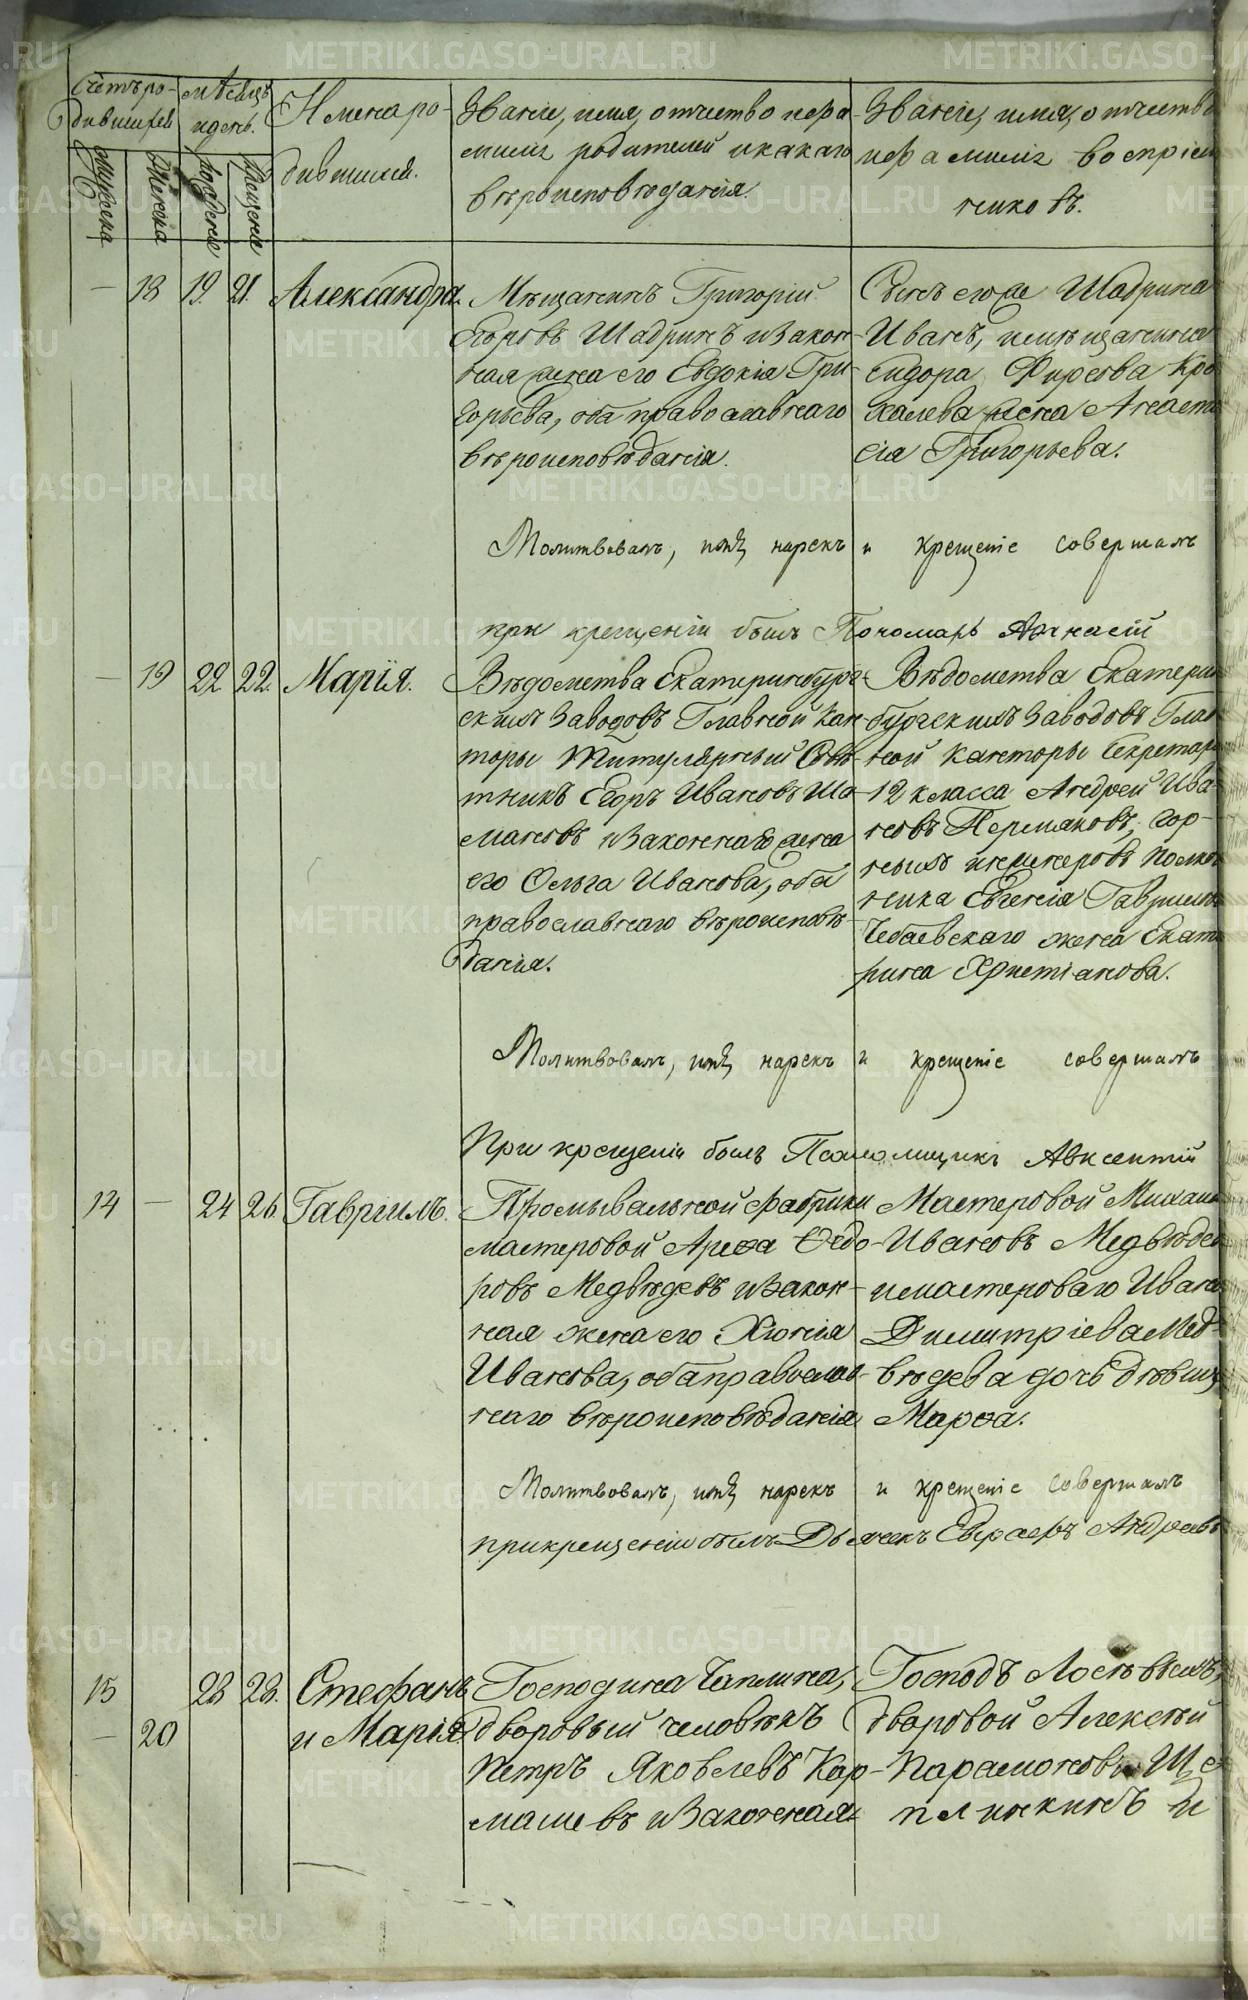 Счетъ ро-
дившихся
мѣсяцъ
и день.
Имена ро-
дившихся.
Званіе, имя, отчество и фа
милія родителей и какаго
вѣроисповѣданія.
Званіе, имя, отчество
и фамилія воспріем
никовъ.
мужеска
женска
рожденія
крещенія
— 18 19. 21. Александра.
Мѣщанинъ Григорій
Егоровъ Шадринъ и закон-
ная жена его Евдокія Гри-
горьева, оба православнаго
вѣроисповѣданія.
Сынъ его же Шадрина
Иванъ, и мѣщанина
Сидора Фирсова Кро
халева жена Анаста
сія Григорьева.
Молитвовалъ, имя нарекъ и крещеніе совершалъ
при крещеніи былъ Пономарь Афанасій
— 19 22 22. Марія.
Вѣдомства Екатеринбург-
скихъ Заводовъ Главной Кан-
торы Титулярный Совѣ-
тникъ Егоръ Ивановъ Шо-
мановъ и законная жена
его Ольга Иванова, оба
православнаго вѣроисповѣ-
данія.
Вѣдомства Екатерин
бургскихъ Заводовъ Глав
ной Канторы Секретарь
12 класса Андрей Ива-
новъ Пермяковъ, гор-
ныхъ инженеровъ полков
ника Евгенія Гаврилова
Чебаевскаго жена Екате
рина Христіанова.
Молитвовалъ, имя нарекъ и крещеніе совершалъ
При крещеніи былъ Псаломщикъ Авксентій
14 — 24 26. Гавріилъ.
Промывальной фабрики
мастеровой Ареѳа Ѳедо-
ровъ Медвѣдевъ и закон-
ная жена его Хіонія
Иванова, оба православ-
наго вѣроисповѣданія
Мастеровой Михаил
Ивановъ Медвѣдев
и мастероваго Ивана
Димитріева Мед-
вѣдева дочь дѣвица
Марѳа.
Молитвовалъ, имя нарекъ и крещеніе совершалъ
при крещеніи былъ Дьячекъ Евграфъ Андреевъ
15 28 28. Стефанъ
— 20 и Марія
Господина Чаплина,
дворовый человѣкъ
Петръ Яковлевъ Кар-
машевъ и законная
Господъ Лосѣвыхъ,
дворовой Алексѣй
Парамоновъ Ще
плинкинъ и
METRIKI.GASO-URAL.RU